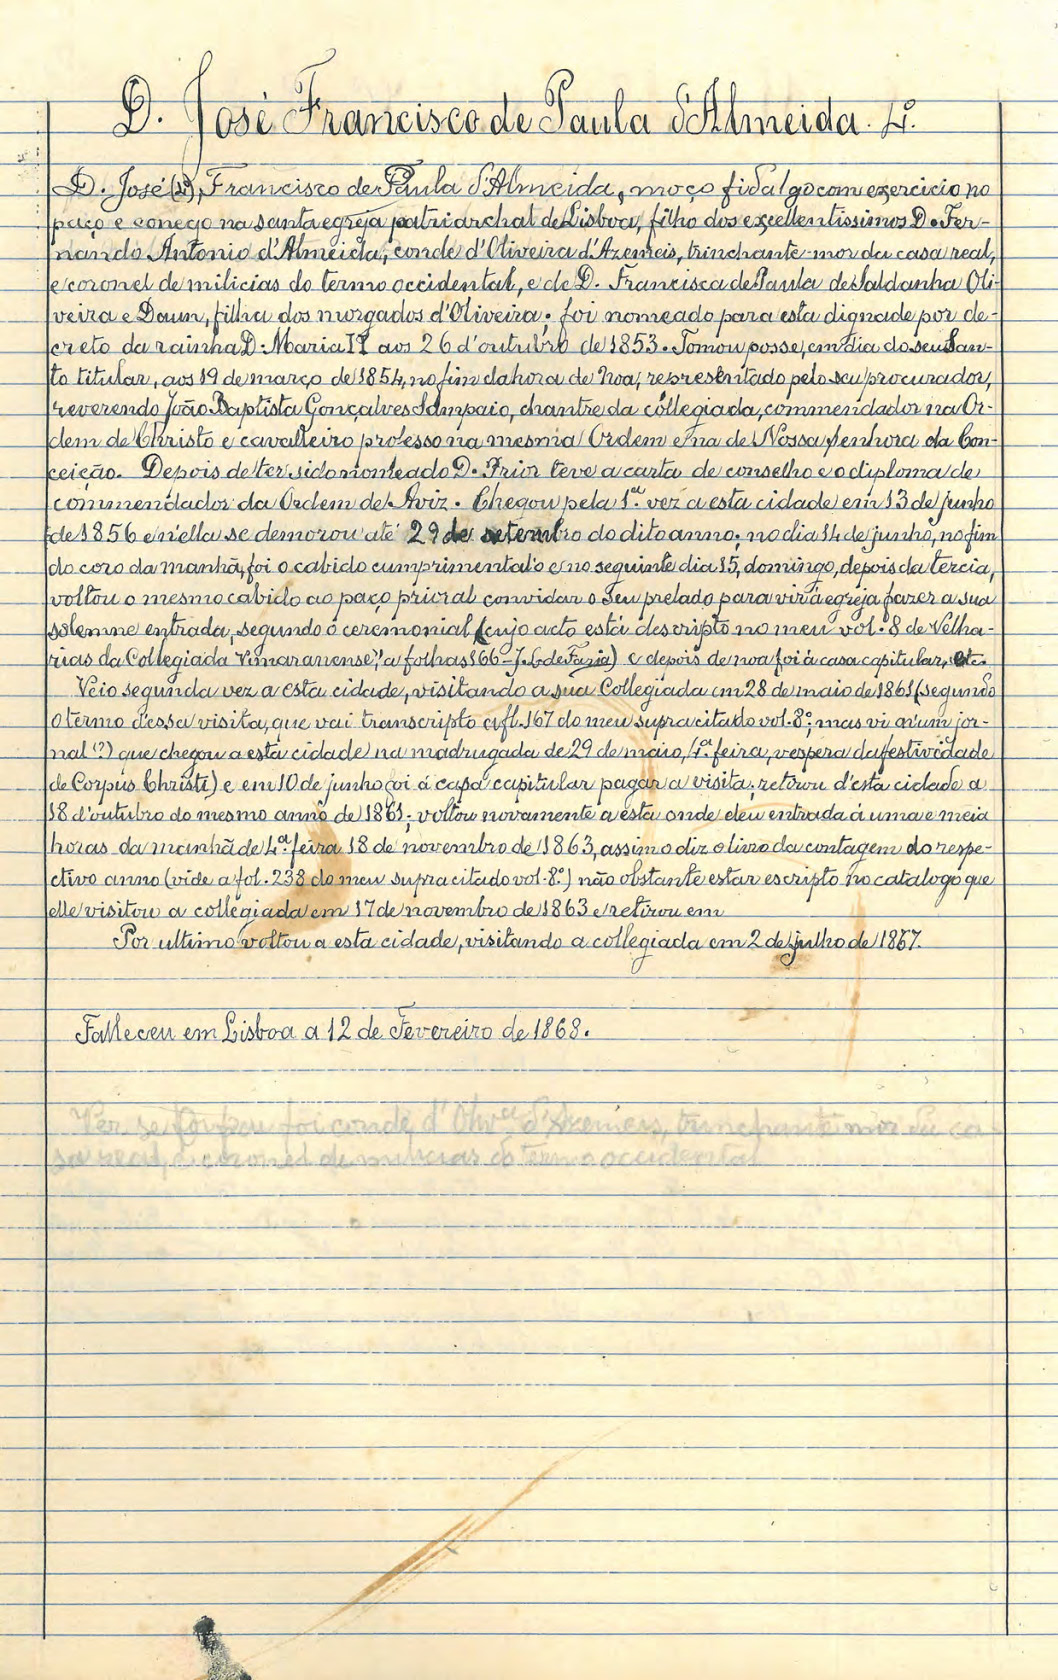 D. José Francisco de Paula d'Almeida. 4º.
D. José (4º), Francisco de Paula d'Almeida, moço fidalgo com exercicio no
paço e conego na santa egreja patriarchal de Lisboa, filho dos excellentissimos D. Fer-
nando Antonio d'Almeida, conde d'Oliveira d'Azemeis, trinchante-mor da casa real,
e coronel de milicias do termo occidental, e de D. Francisca de Paula de Saldanha Oli-
veira e Daun, filha dos morgados d'Oliveira; foi nomeado para esta dignade por de-
creto da rainha D. Maria II aos 26 d'outubro de 1853. Tomou posse, em dia do seu San-
to titular, aos 19 de março de 1854, no fim da hora de Noa, representado pelo seu procurador,
reverendo João Baptista Gonçalves Sampaio, chantre da collegiada, commendador na Or-
dem de Christo e cavalleiro professo na mesma Ordem e na de Nossa Senhora da Con-
ceição. Depois de ter sido nomeado D. Prior teve a carta de conselho e o diploma de
commendador da Ordem de Aviz. Chegou pela 1ª. vez a esta cidade em 13 de junho
de 1856 e n'ella se demorou até 29 de setembro do dito anno; no dia 14 de junho, no fim
do coro da manhã, foi o cabido cumprimental'o e no seguinte dia 15, domingo, depois da tercia,
voltou o mesmo cabido ao paço prioral convidar o seu prelado para vir á egreja fazer a sua
solemne entrada, segundo o ceremonial (cujo acto está descripto no meu vol. 8 de Velha-
rias da Collegiada Vimaranense, a folhas 166 - J. L. de Faria) e depois de noa foi á casa capitular, etc.
Veio segunda vez a esta cidade, visitando a sua Collegiada em 28 de maio de 1861 (segundo
o termo d'essa visita, que vai transcripto a fl. 167 do meu supracitado vol. 8º; mas vi n'um jor-
nal (?) que chegou a esta cidade na madrugada de 29 de maio, 4ª. feira, vespera da festividade
de Corpus Christi) e em 10 de junho foi á casa capitular pagar a visita; retirou d'esta cidade a
18 d'outubro do mesmo anno de 1861; voltou novamente a esta onde deu entrada á uma e meia
horas da manhã de 4ª. feira 18 de novembro de 1863, assim o diz o livro da contagem do respe-
ctivo anno (vide a fol. 238 do meu supracitado vol. 8º.) não obstante estar escripto no catalogo que
elle visitou a collegiada em 17 de novembro de 1863 e retirou em
Por ultimo voltou a esta cidade, visitando a collegiada em 2 de julho de 1867.
Falleceu em Lisboa a 12 de Fevereiro de 1868.
Ver se foi pau foi conde d'Olivª. d'Azemeis, trinchante mór da ca-
sa real, e coronel de milicias do termo occidental